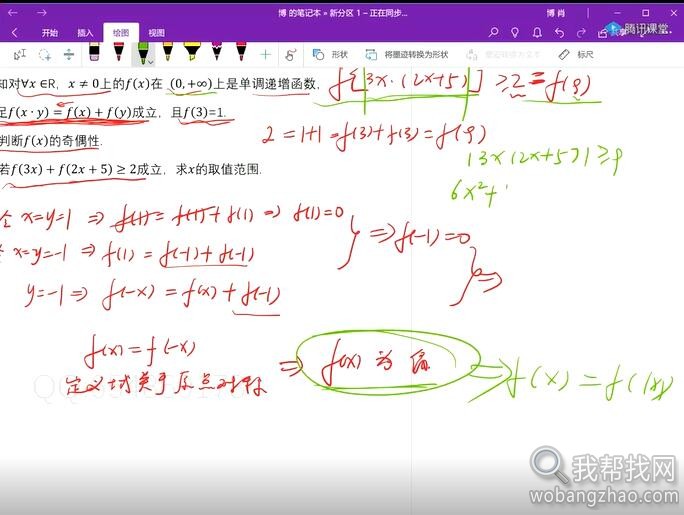 博 的笔记本 » 新分区 1 – 正在同步...
博 肖
腾讯课堂
开始 插入 绘图 视图
形状 将墨迹转换为形状 将墨迹转换为文本 标尺
知对∀x∈R，x≠0上的f(x)在 (0,+∞)上是单调递增函数，
足f(x·y)=f(x)+f(y)成立，且f(3)=1.
判断f(x)的奇偶性.
若f(3x)+f(2x+5)≥2成立，求x的取值范围.
f[3x·(2x+5)]≥2=f(9)
2=1+1=f(3)+f(3)=f(9)
|3x(2x+5)|≥9
6x²+
令 x=y=1 ⇒ f(1)=f(1)+f(1) ⇒ f(1)=0
x=y=-1 ⇒ f(1)=f(-1)+f(-1)
⇒f(-1)=0
y=-1 ⇒ f(-x)=f(x)+f(-1)
⇒
f(x)=f(-x)
定义域关于原点对称
⇒ f(x) 为偶
⇒ f(x)=f(|x|)
我帮找网
wobangzhao.com